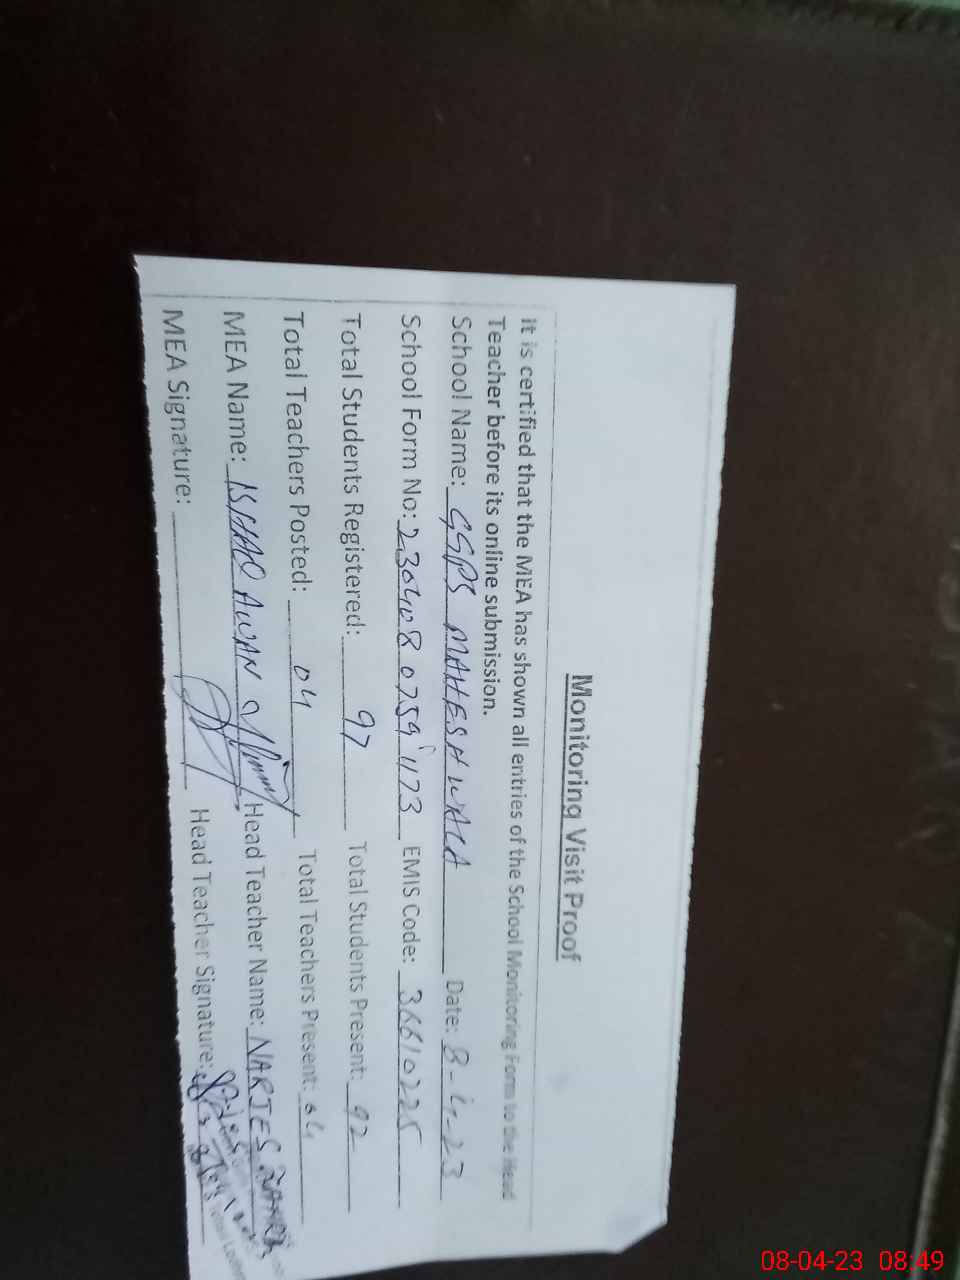 Monitoring Visit Proof
It is certified that the MEA has shown all entries of the School Monitoring Form to the Head
Teacher before its online submission.
School Name: GGPS MAHESH WALA Date: 8-4-23
School Form No: EMIS Code: 36610225
Total Students Registered: 97 Total Students Present: 92
Total Teachers Posted: 04 Total Teachers Present: 04
MEA Name: ISHAQ AWAN Head Teacher Name: NARJES
MEA Signature: Head Teacher Signature:
08-04-23 08:49